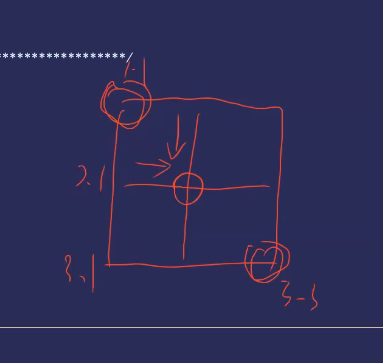 ******************/
1-1
2.1
3.1
3-3